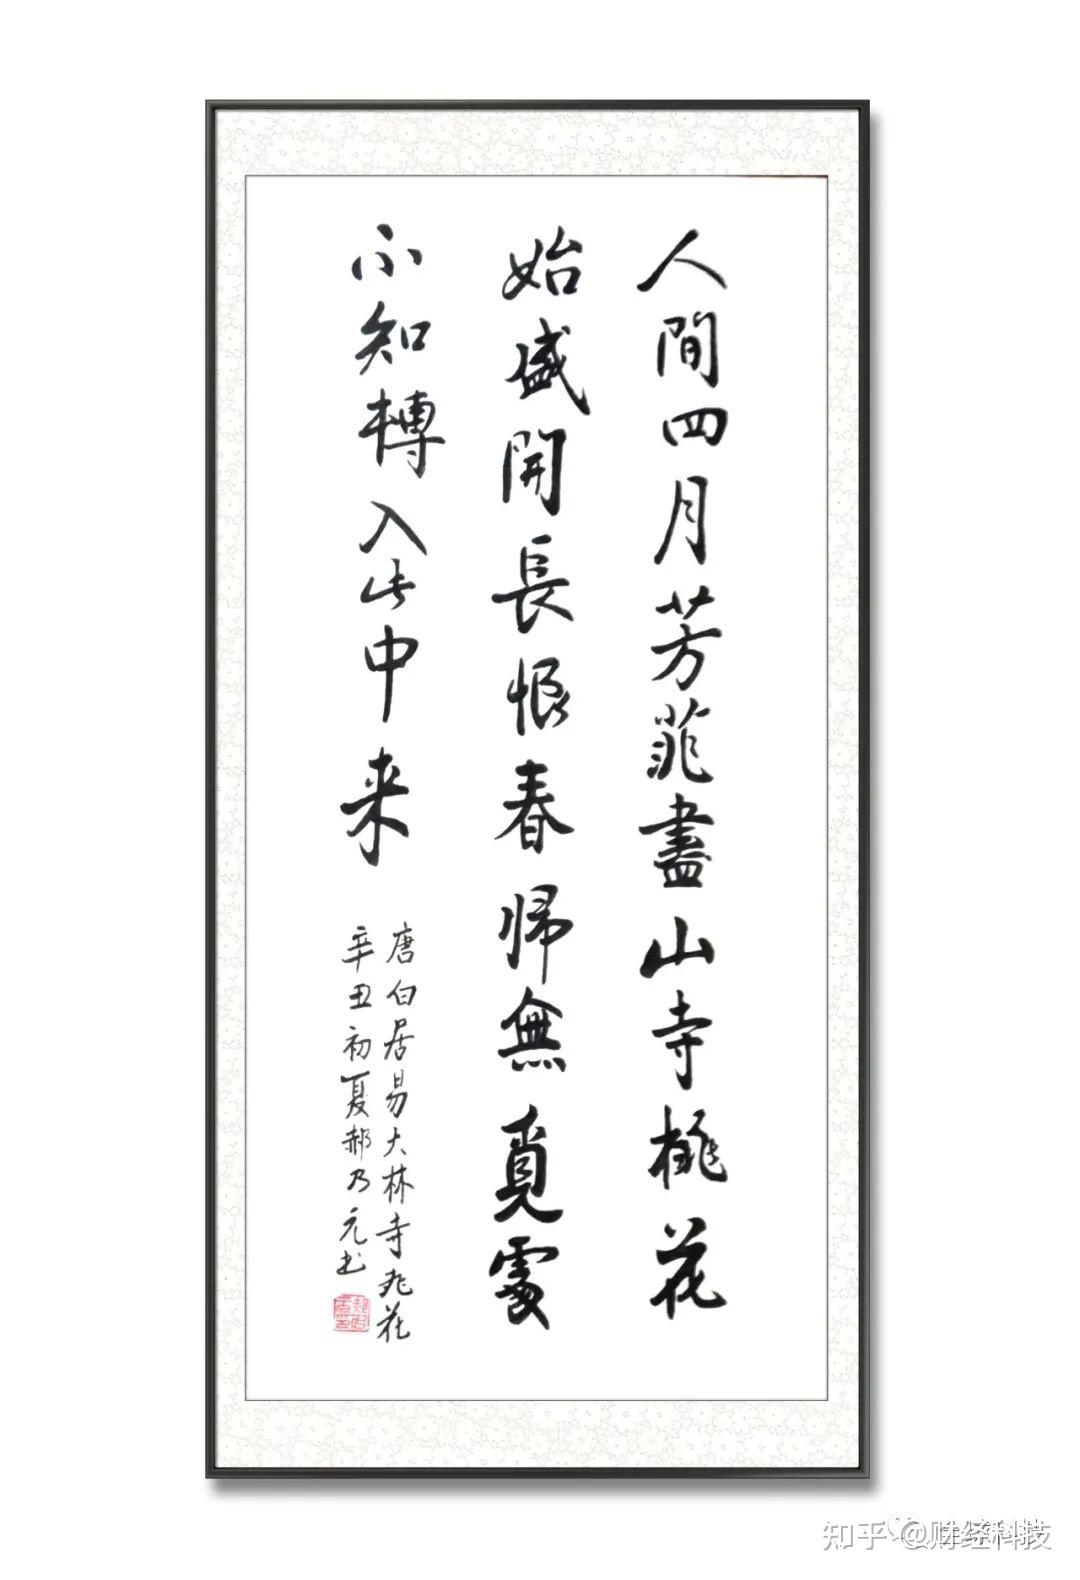 人間四月芳菲盡山寺桃花
始盛開長恨春歸無覓處
不知轉入此中来
唐白居易大林寺桃花
辛丑初夏郝乃元书
知乎 @财经科技